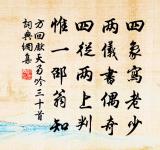 四象寫老少
兩儀書偶奇
四從兩上判
惟一邵翁知
方回獻天為吟三十首
詞典網集